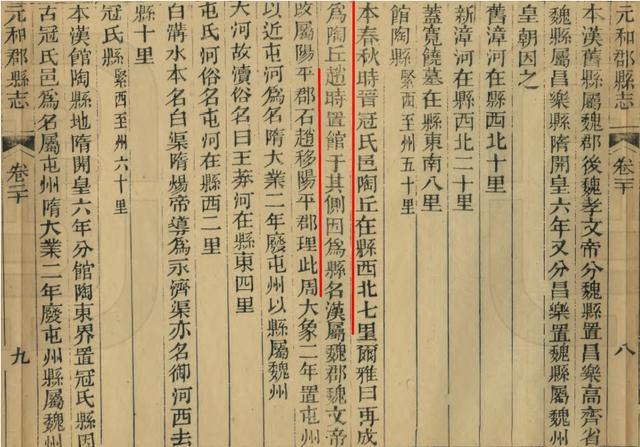 元和郡縣志 卷二十 八
本漢舊縣屬魏郡後魏孝文帝分魏縣置昌樂高齊省
魏縣屬昌樂縣隋開皇六年又分昌樂置魏縣屬魏州
皇朝因之
舊漳河在縣西北十里
新漳河在縣西北二十里
蓋寬饒墓在縣東南八里
館陶縣 緊西至州五十里
本春秋時晉冠氏邑陶丘在縣西北七里爾雅曰再成
爲陶丘趙時置館于其側因爲縣名漢屬魏郡魏文帝
改屬陽平郡石趙移陽平郡理此周大象二年置屯州
以近屯河爲名隋大業二年廢屯州以縣屬魏州
大河故瀆俗名曰王莽河在縣東四里
屯氏河俗名屯河在縣西二里
白溝水本名白渠隋煬帝導爲永濟渠亦名御河西去
縣十里
冠氏縣 緊西至州六十里
本漢館陶縣地隋開皇六年分館陶東界置冠氏縣因
古冠氏邑爲名屬屯州隋大業二年廢屯州縣屬魏州
元和郡縣志 卷二十 九